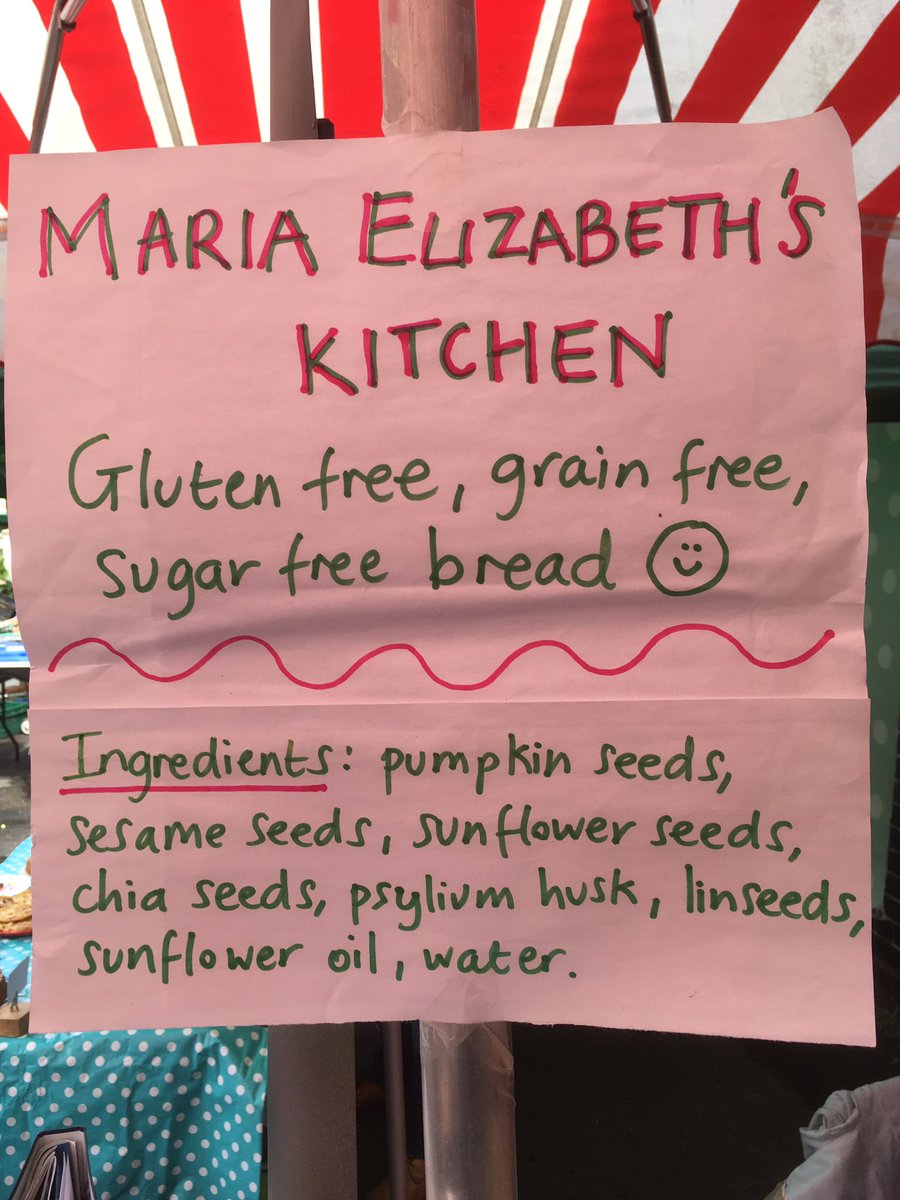 MARIA ELIZABETH'S
KITCHEN
Gluten free, grain free,
sugar free bread
Ingredients: pumpkin seeds,
sesame seeds, sunflower seeds,
chia seeds, psylium husk, linseeds,
sunflower oil, water.